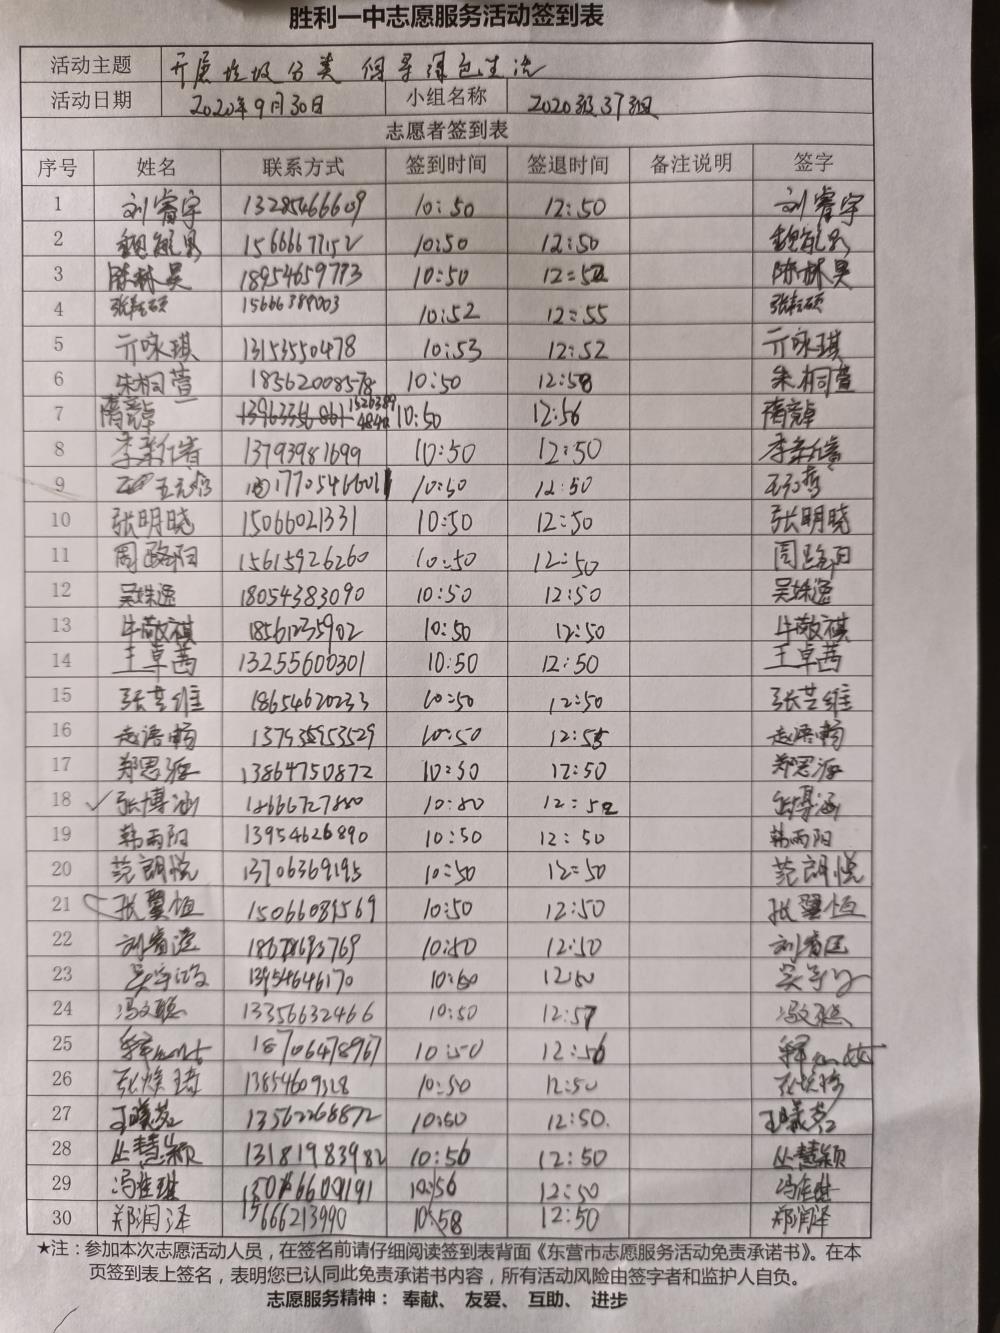 胜利一中志愿服务活动签到表
活动主题 开展垃圾分类 倡导绿色生活
活动日期 2020年9月30日 小组名称 2020级37组
志愿者签到表
序号 姓名 联系方式 签到时间 签退时间 备注说明 签字
1 刘睿宇 13285466609 10:50 12:50 刘睿宇
2 15666677152 10:50 12:50
3 陈林昊 18954659773 10:50 陈林昊
4 15666389003 10:52 12:55
5 亓咏琪 13153550478 10:53 12:52 亓咏琪
6 朱桐萱 18562008578 10:50 12:58 朱桐萱
7 10:50 12:56
8 13793981699 10:50 12:50
9 17705466011 10:50 12:50
10 张明晓 15066021331 10:50 12:50 张明晓
11 周路阳 15615926260 10:50 12:50 周路阳
12 吴姝逸 18054383090 10:50 12:50 吴姝逸
13 牛敬祺 18561235902 10:50 12:50 牛敬祺
14 王卓茜 13255600301 10:50 12:50 王卓茜
15 张芸维 18654620233 10:50 12:50 张芸维
16 赵语畅 10:50 12:55 赵语畅
17 郑思源 13864750872 10:50 12:50 郑思源
18 张博涵 18666727880 12:52 张博涵
19 韩雨阳 13954626890 10:50 12:50 韩雨阳
20 范朗悦 13706369195 10:50 12:50 范朗悦
21 张翼恒 15066081569 10:50 12:50 张翼恒
22 18678693769 10:50 12:50
23 13954646170 10:50 12:50
24 冯文聪 13356632466 10:50 12:57 冯文聪
25 18706478967 10:50 12:56
26 10:50 12:50
27 王曦茗 13562268872 10:50 12:50. 王曦茗
28 丛慧颖 13181983982 10:56 12:50 丛慧颖
29 冯佳琪 10:56 12:50 冯佳琪
30 郑润泽 15666213990 10:58 12:50 郑润泽
★注：参加本次志愿活动人员，在签名前请仔细阅读签到表背面《东营市志愿服务活动免责承诺书》。在本
页签到表上签名，表明您已认同此免责承诺书内容，所有活动风险由签字者和监护人自负。
志愿服务精神： 奉献、 友爱、 互助、 进步